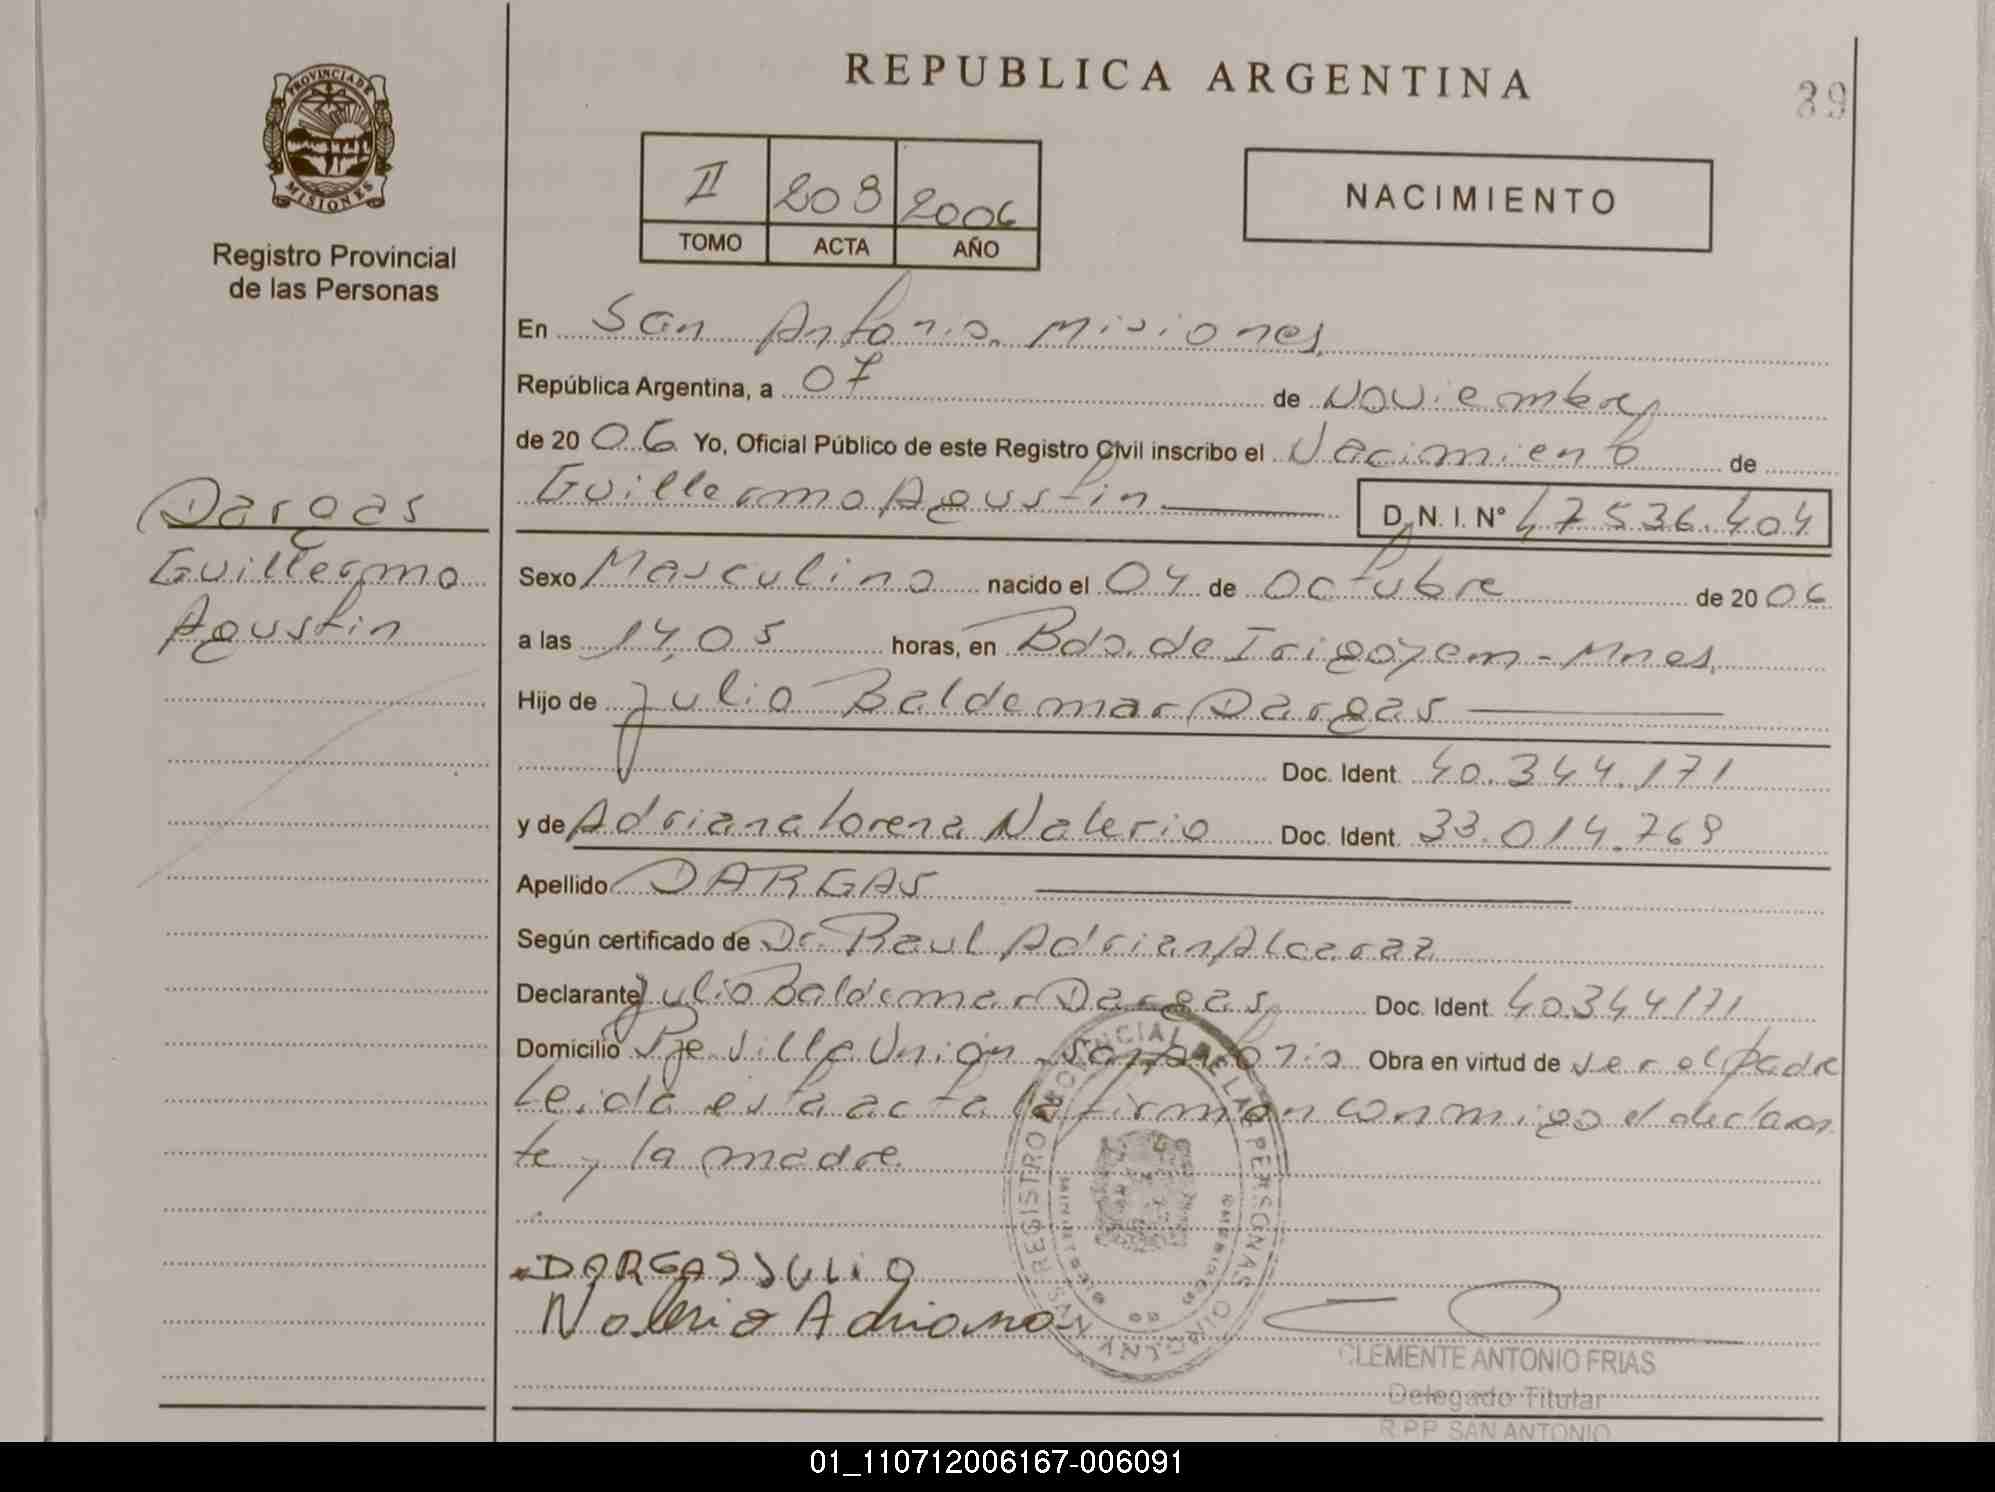 REPUBLICA ARGENTINA
89
PROVINCIA DE MISIONES
Registro Provincial
de las Personas
II 209 2006
TOMO ACTA AÑO
NACIMIENTO
En San Antonio. Misiones,
República Argentina, a 07 de Noviembre
de 2006 Yo, Oficial Público de este Registro Civil inscribo el Nacimiento de
Guillermo Agustin D. N. I. Nº 47536.404
Dargas
Guillermo
Agustin
Sexo Masculino nacido el 04 de Octubre de 2006
a las 14,05 horas, en Bdo. de Irigoyem - Mnes,
Hijo de Julio Baldemar Dargas
Doc. Ident. 40.344.171
y de Adriana Lorena Nalerio Doc. Ident. 33.014.769
Apellido DARGAS
Según certificado de Dr. Raul Adrian Alcaraz
Declarante Julio Baldemar Dargas, Doc. Ident. 40344171
Domicilio Pje. Villa Union. San Antonio Obra en virtud de ser el padre
Leida esta acta la firman conmigo el declaran
te y la madre
DARGAS JULIO
Nalerio Adriana
REGISTRO PROVINCIAL DE LAS PERSONAS
CLEMENTE ANTONIO FRIAS
Delegado Titular
R.P.P. SAN ANTONIO
01_110712006167-006091